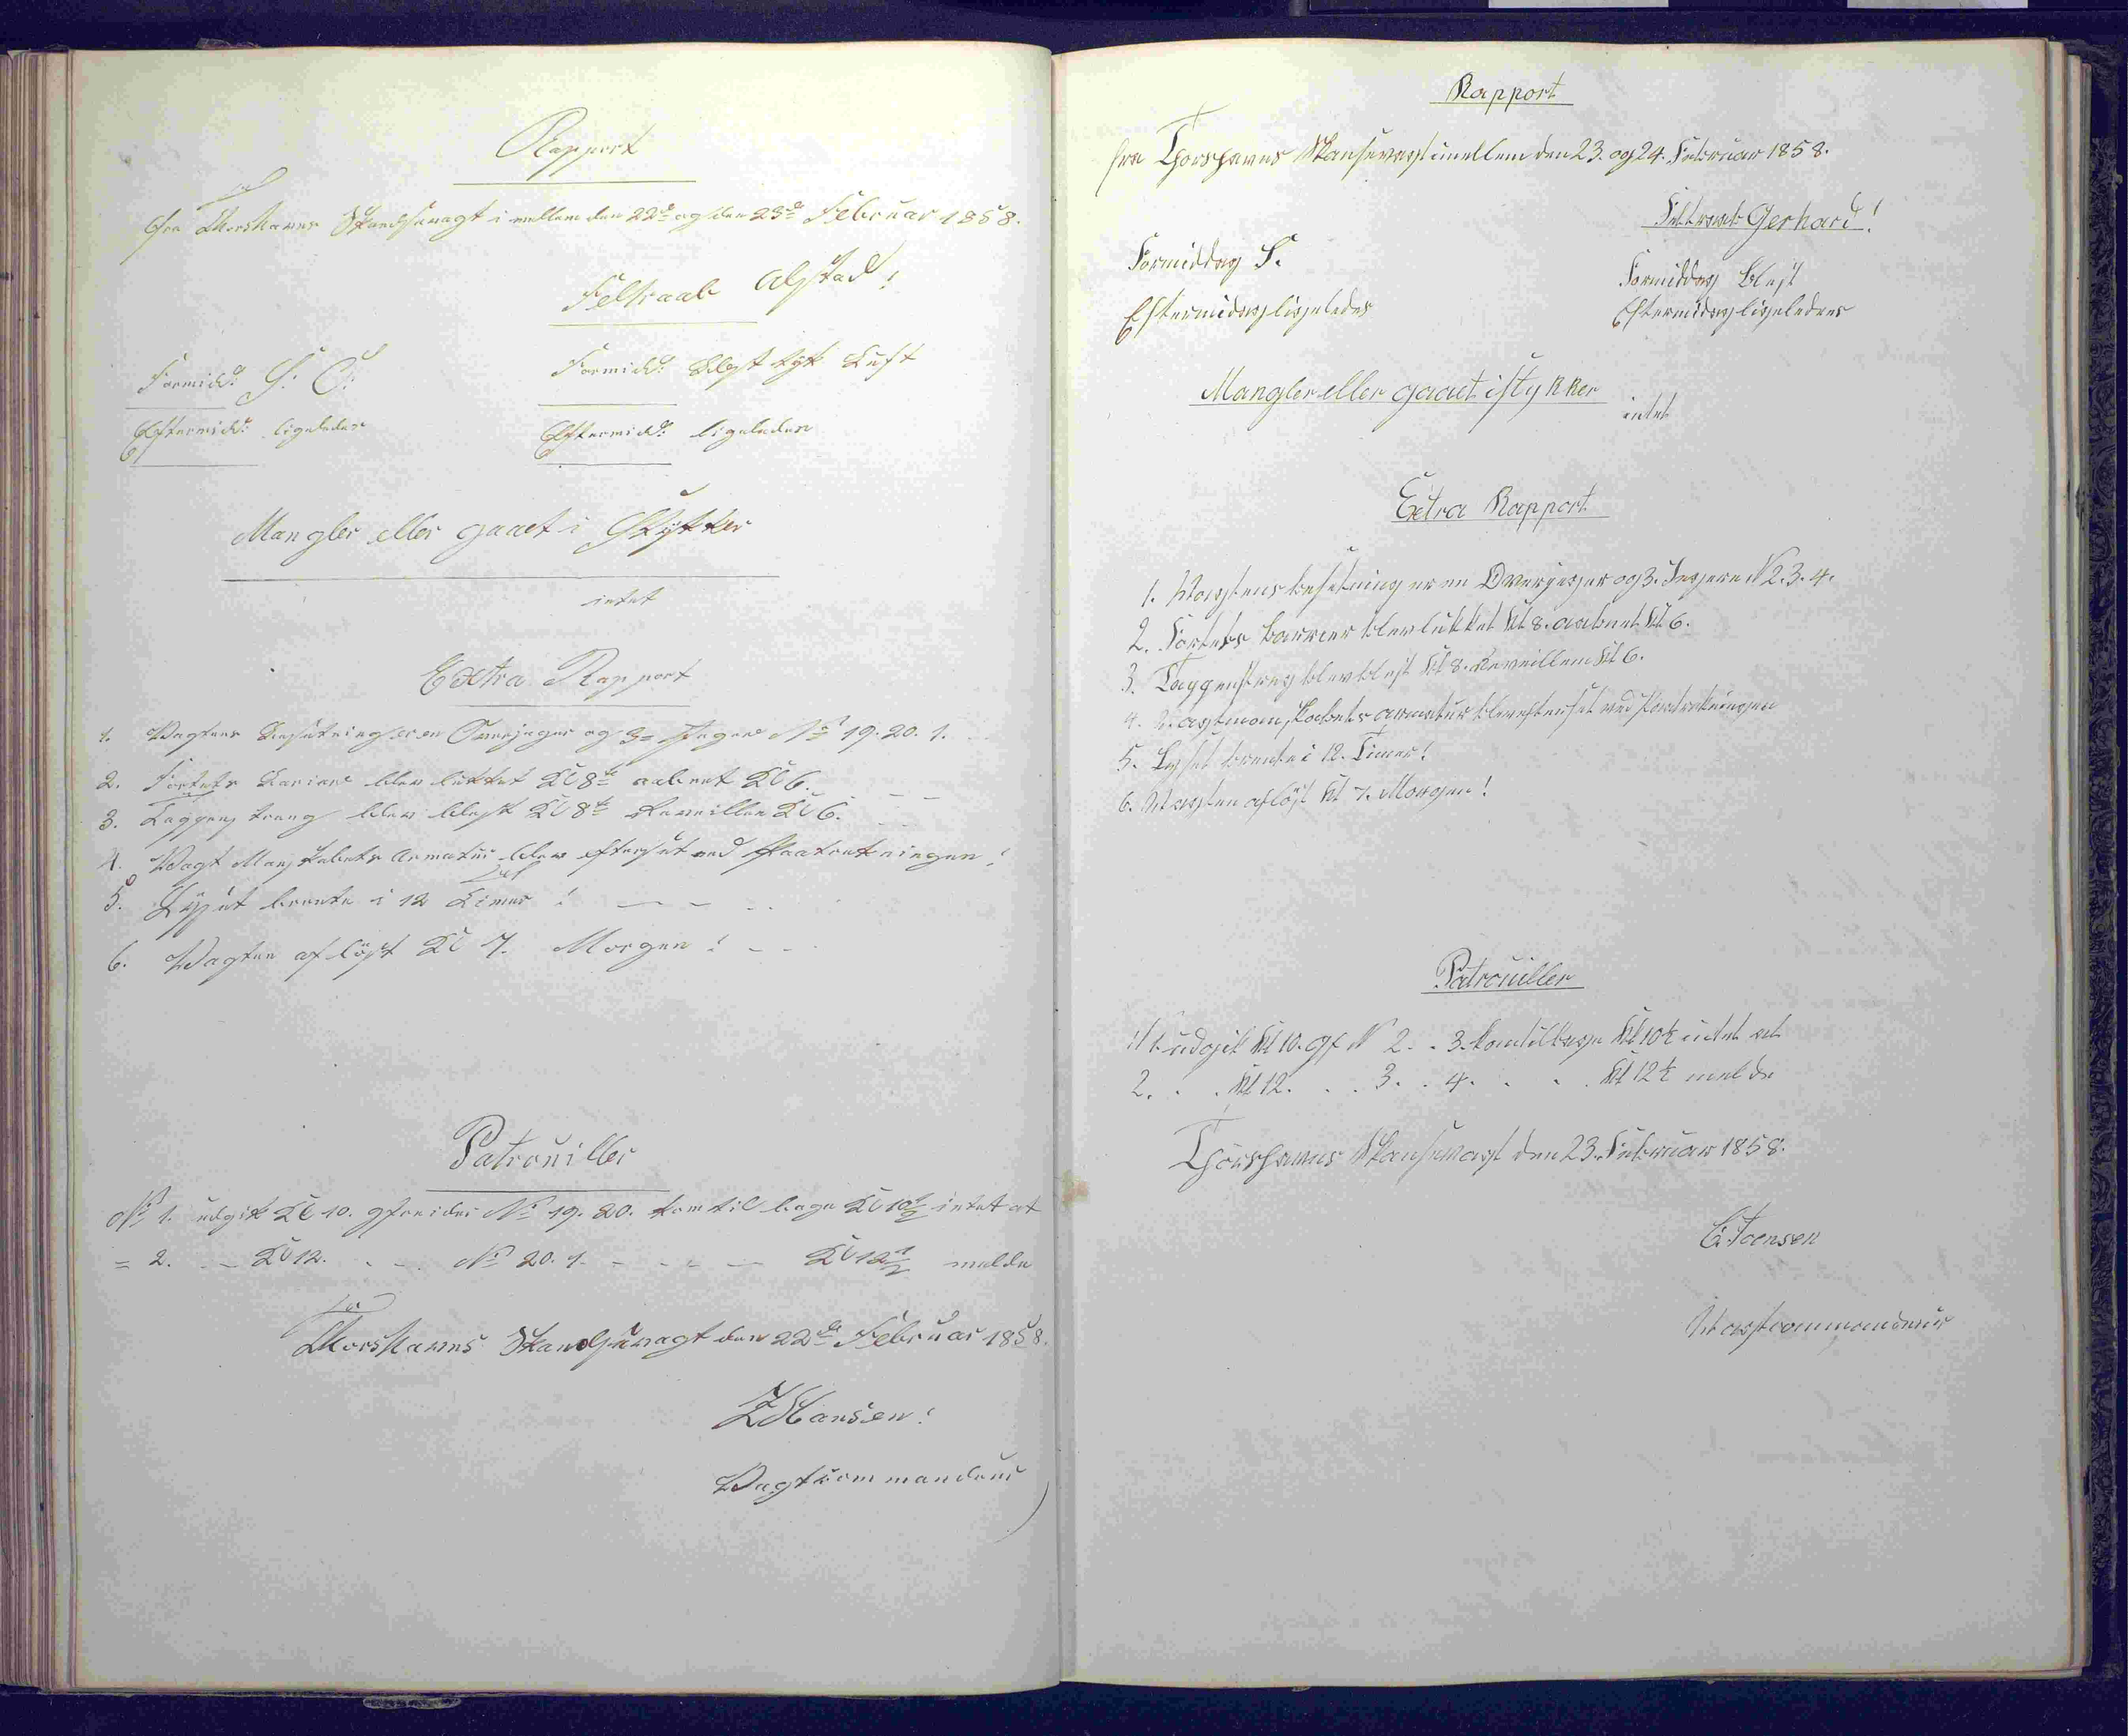 Rapport
fra Thorshavns Skandsevagt imellem den 22de og den 23de Februar 1858.
Feltraab Alstad!
Formidd: S: O: Formidd: Blæst tyk Luft
Eftermidd: ligeledes Eftermidd: ligeledes
Mangler eller gaaet i Stykker
intet
Extra Rapport
1. Vagtens Besætning er en Overjæger og 3= Jægere No 19. 20. 1.
2. Fortets Bariere blev lukket Kl 8te aabnet Kl 6.
3. Tappenstreng blev blæst Kl 8te Reveillen Kl 6.
4. Vagt Manskabets Armatur blev efterset ved Paatrækningen!
5. Lyset brænte i 12 Timer!
6. Vagten afløst Kl 7. Morgen!
Patrouiller
No 1. udgik Kl 10. Gefreider No 19. 20. kom tilbage Kl 10 1/2 intet at
= 2. - - Kl 12. - - No 20. 1. - - - - Kl 12 1/2 melde
Thorshavns Skandsevagt den 22de Februar 1858.
Z Hansen!
Vagtkommandeur
Rapport
fra Thorshavns Skansevagt imellem den 23. og 24. Februar 1858.
Feltraab Gerhard!
Formiddag S. Formiddag Blæst
Eftermidag ligeledes Eftermidag ligeledes
Mangler eller gaaet istykker
intet
Extra Rapport
1. Vagtens besetning er en Overjæger og 3. Jægere N 2. 3. 4.
2. Fortets barrier blev lukket Kl 8. aabnet Kl 6.
3. Tappenstreg blev blæst Kl 8. Reveillem Kl 6.
4. Vagtmanskabets armatur blev efterset ved Paatrekningen
5. Lyset brente i 12. Timer!
6. Vagten afløst Kl 7. Morgen!
Patrouiller
N 1. udgik Kl 10. Gf N 2. . 3. kom tilbage Kl 10 1/2 intet at
2. . . Kl 12. . . 3. . 4. . . . Kl 12 1/2 melde
Thorshavns Skansevagt den 23. Februar 1858.
E. Joensen
Vagtcommandeur